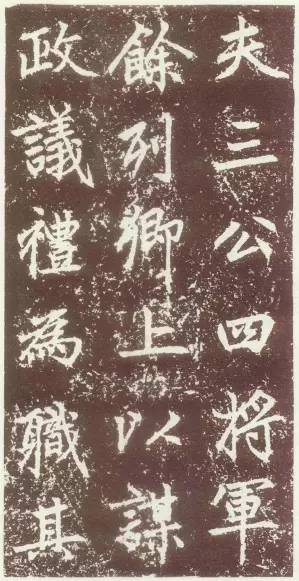 夫三公四将軍
餘列卿上以謀
政議禮為職其